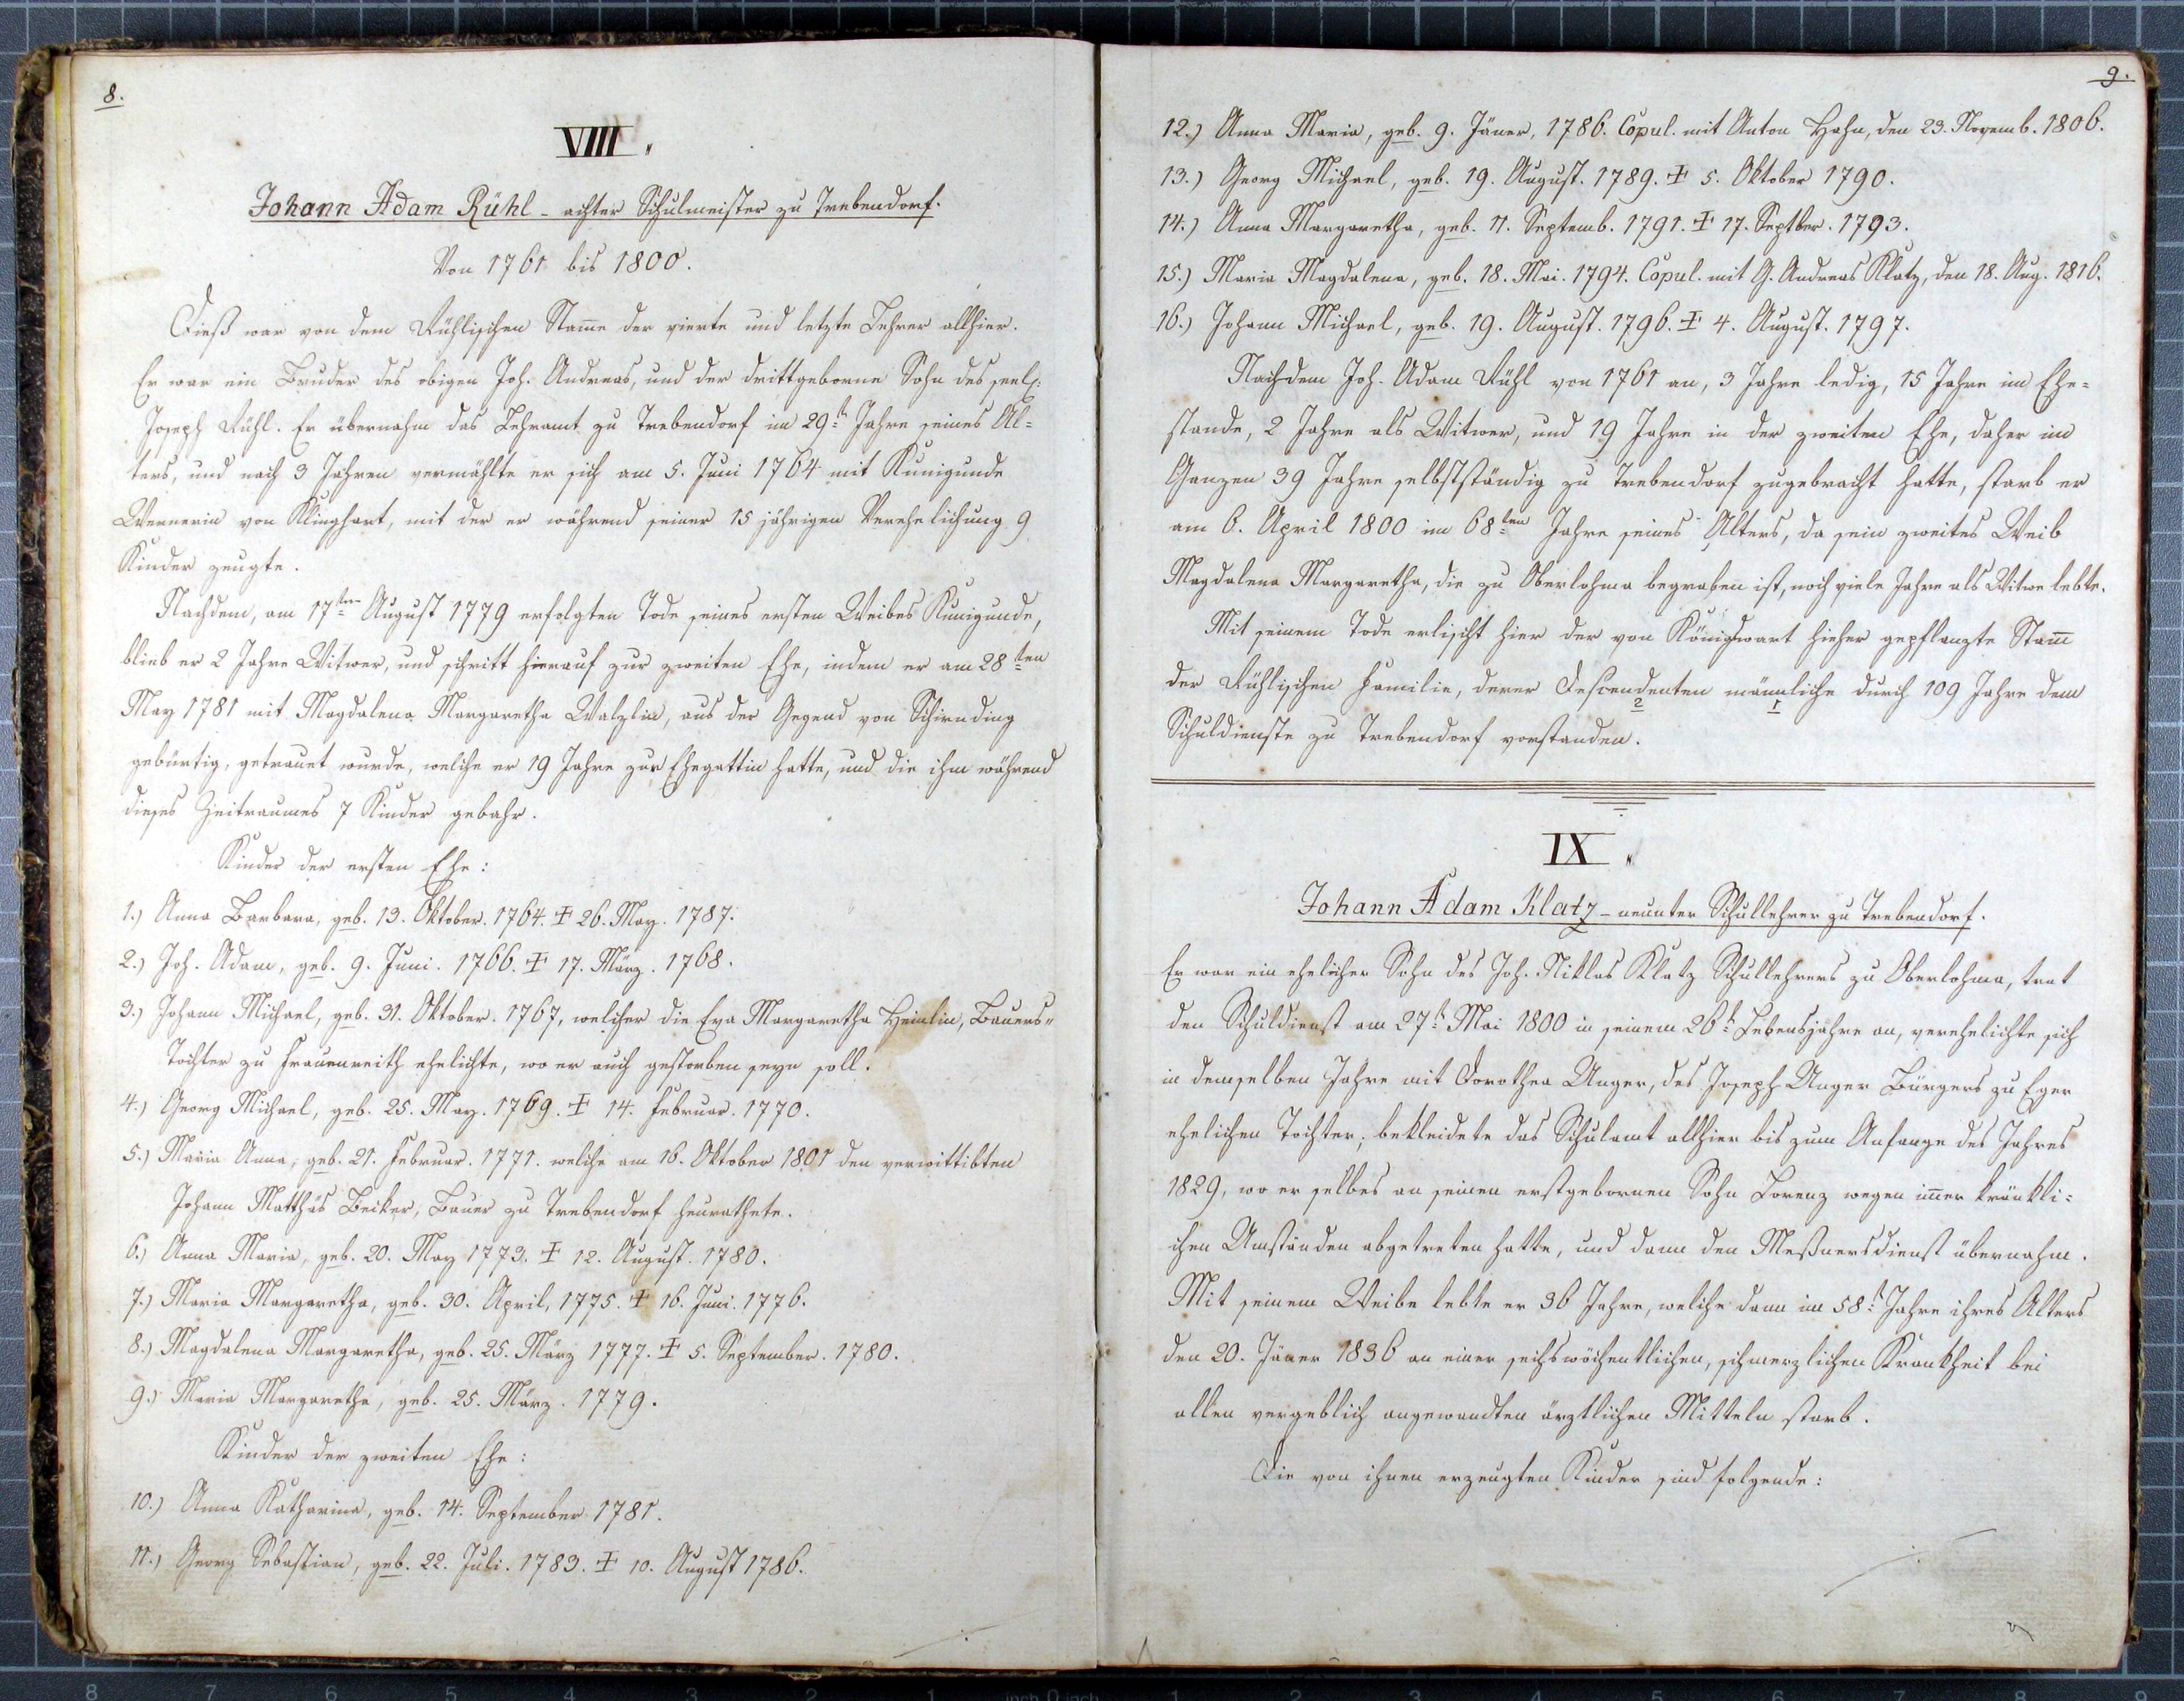 8.
VIII.
Johann Adam Rühl - achter Schulmeister zu Trebendorf.
Von 1761 bis 1800.
Dieß war von dem Rühlischen Stam̄e der vierte und letzte Lehrer allhier.
Er war ein Bruder des obigen Joh. Andreas, und der drittgeborne Sohn des seel:
Joseph Rühl. Er übernahm das Lehramt zu Trebendorf im 29t Jahre seines Al=
ters, und nach 3 Jahren vermählte er sich am 5. Juni 1764 mit Kunigunde
Wernerin von Klinghart, mit der er während seiner 15 jährigen Verehelichung 9
Kinder zeugte.
Nachdem, am 17ten August 1779 erfolgten Tode seines ersten Weibes Kunigunde,
blieb er 2 Jahre Witwer, und schritt hierauf zur zweiten Ehe, indem er am 28ten
May 1781 mit Magdalena Margaretha Walzlin, aus der Gegend von Schirnding
gebürtig, getrauet wurde, welche er 19 Jahre zur Ehegattin hatte, und die ihm während
dieses Zeitraumes 7 Kinder gebahr.
Kinder der ersten Ehe:
1.) Anna Barbara, geb. 13. Oktober. 1764. ‡ 26. May. 1787.
2.) Joh. Adam, geb. 9. Juni. 1766. ‡ 17. März. 1768.
3.) Johann Michael, geb. 31. Oktober. 1767, welcher die Eva Margaretha Heinlin, Bauers=
Tochter zu Frauenreith ehelichte, wo er auch gestorben seyn soll.
4.) Georg Michael, geb. 25. May. 1769. ‡ 14. Februar. 1770.
5.) Maria Anna, geb. 21. Februar. 1771. welche am 16. Oktober 1801 den verwittibten
Johann Matthäs Beiker, Bauer zu Trebendorf heurathete.
6.) Anna Maria, geb. 20. May 1773. ‡ 12. August. 1780.
7.) Maria Margaretha, geb. 30. April, 1775. ‡ 16. Juni. 1776.
8.) Magdalena Margaretha, geb. 25. März 1777. ‡ 5. September. 1780.
9.) Maria Margaretha, geb. 25. März. 1779.
Kinder der zweiten Ehe:
10.) Anna Katharina, geb. 14. September 1781.
11.) Georg Sebastian, geb. 22. Juli. 1783. ‡ 10. August 1786.
9.
12.) Anna Maria, geb. 9. Jäner, 1786. Copul. mit Anton Hahn, den 23. Novemb. 1806.
13.) Georg Michael, geb. 19. August. 1789. ‡ 5. Oktober 1790.
14.) Anna Margaretha, geb. 11. Septemb. 1791. ‡ 17. Septber. 1793.
15.) Maria Magdalena, geb. 18. Mai. 1794. Copul. mit G. Andreas Klatz, den 18. Aug. 1816.
16.) Johann Michael, geb. 19. August. 1796. ‡ 4. August. 1797.
Nachdem Joh. Adam Rühl von 1761 an, 3 Jahre ledig, 15 Jahre im Ehe=
stande, 2 Jahre als Witwer, und 19 Jahre in der zweiten Ehe, daher im
Ganzen 39 Jahre selbstständig zu Trebendorf zugebracht hatte, starb er
am 6. April 1800 im 68ten Jahre seines Alters, da sein zweites Weib
Magdalena Margaretha, die zu Oberlohma begraben ist, noch viele Jahre als Witwe lebte.
Mit seinem Tode erlischt hier der von Königswart hieher gepflanzte Stam̄
der Rühlischen Familie, derer Descendenten männliche durch 109 Jahre dem
2 1
Schuldienste zu Trebendorf vorstanden.
IX.
Johann Adam Klatz - neunter Schullehrer zu Trebendorf.
Er war ein ehelicher Sohn des Joh. Niklas Klatz Schullehrers zu Oberlohma, trat
den Schuldienst am 27t Mai 1800 in seinem 26t Lebensjahre an, verehelichte sich
in demselben Jahre mit Dorothea Unger, des Joseph Unger Bürgers zu Eger
ehelichen Tochter; bekleidete das Schulamt allhier bis zum Anfange des Jahres
1829, wo er selbes an seinen erstgebornen Sohn Lorenz wegen im̄er kränkli=
chen Umständen abgetreten hatte, und dann den Meßnersdienst übernahm.
Mit seinem Weibe lebte er 36 Jahre, welche dann im 58t Jahre ihres Alters
den 20. Jäner 1836 an einer sechswöchentlichen, schmerzlichen Krankheit bei
allen vergeblich angewandten ärztlichen Mitteln starb.
Die von ihnen erzeugten Kinder sind folgende:
8 7 6 5 4 3 2 1 inch 0 inch 1 2 3 4 5 6 7 8 9